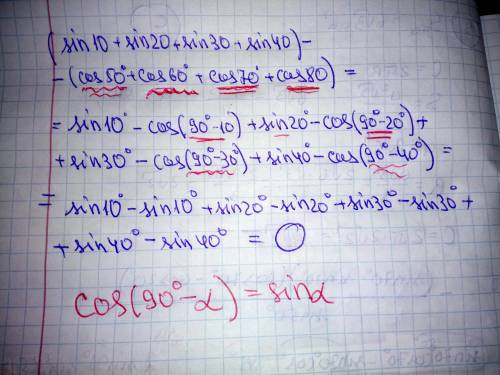 (sin10 + sin20 + sin30 + sin40) -
- (cos50° + cos60° + cos70° + cos80) =
= sin10° - cos(90°-10) + sin20 - cos(90°-20°) +
+ sin30° - cos(90°-30°) + sin40° - cos(90°-40°) =
= sin10° - sin10° + sin20° - sin20° + sin30° - sin30° +
+ sin40° - sin40° = 0
cos(90° - α) = sinα